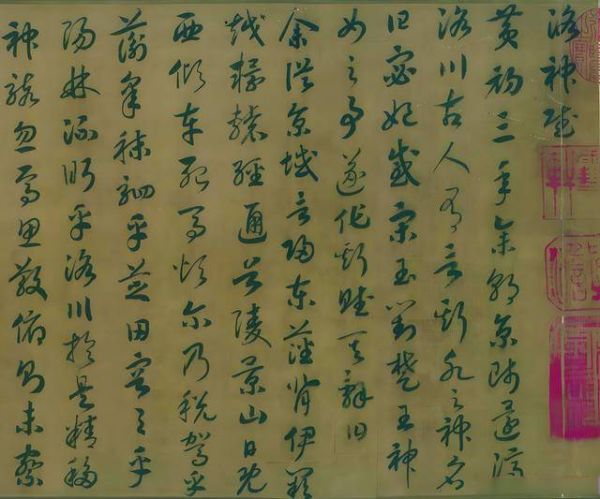 洛神賦
黃初三年余朝京師還濟
洛川古人有言斯水之神名
曰宓妃感宋玉對楚王神
女之事遂作斯賦其辭曰
余從京域言歸東藩背伊闕
越轘轅經通谷陵景山日既
西傾車殆馬煩爾乃稅駕乎
蘅皋秣駟乎芝田容與乎
陽林流眄乎洛川於是精移
神駭忽焉思散俯則未察